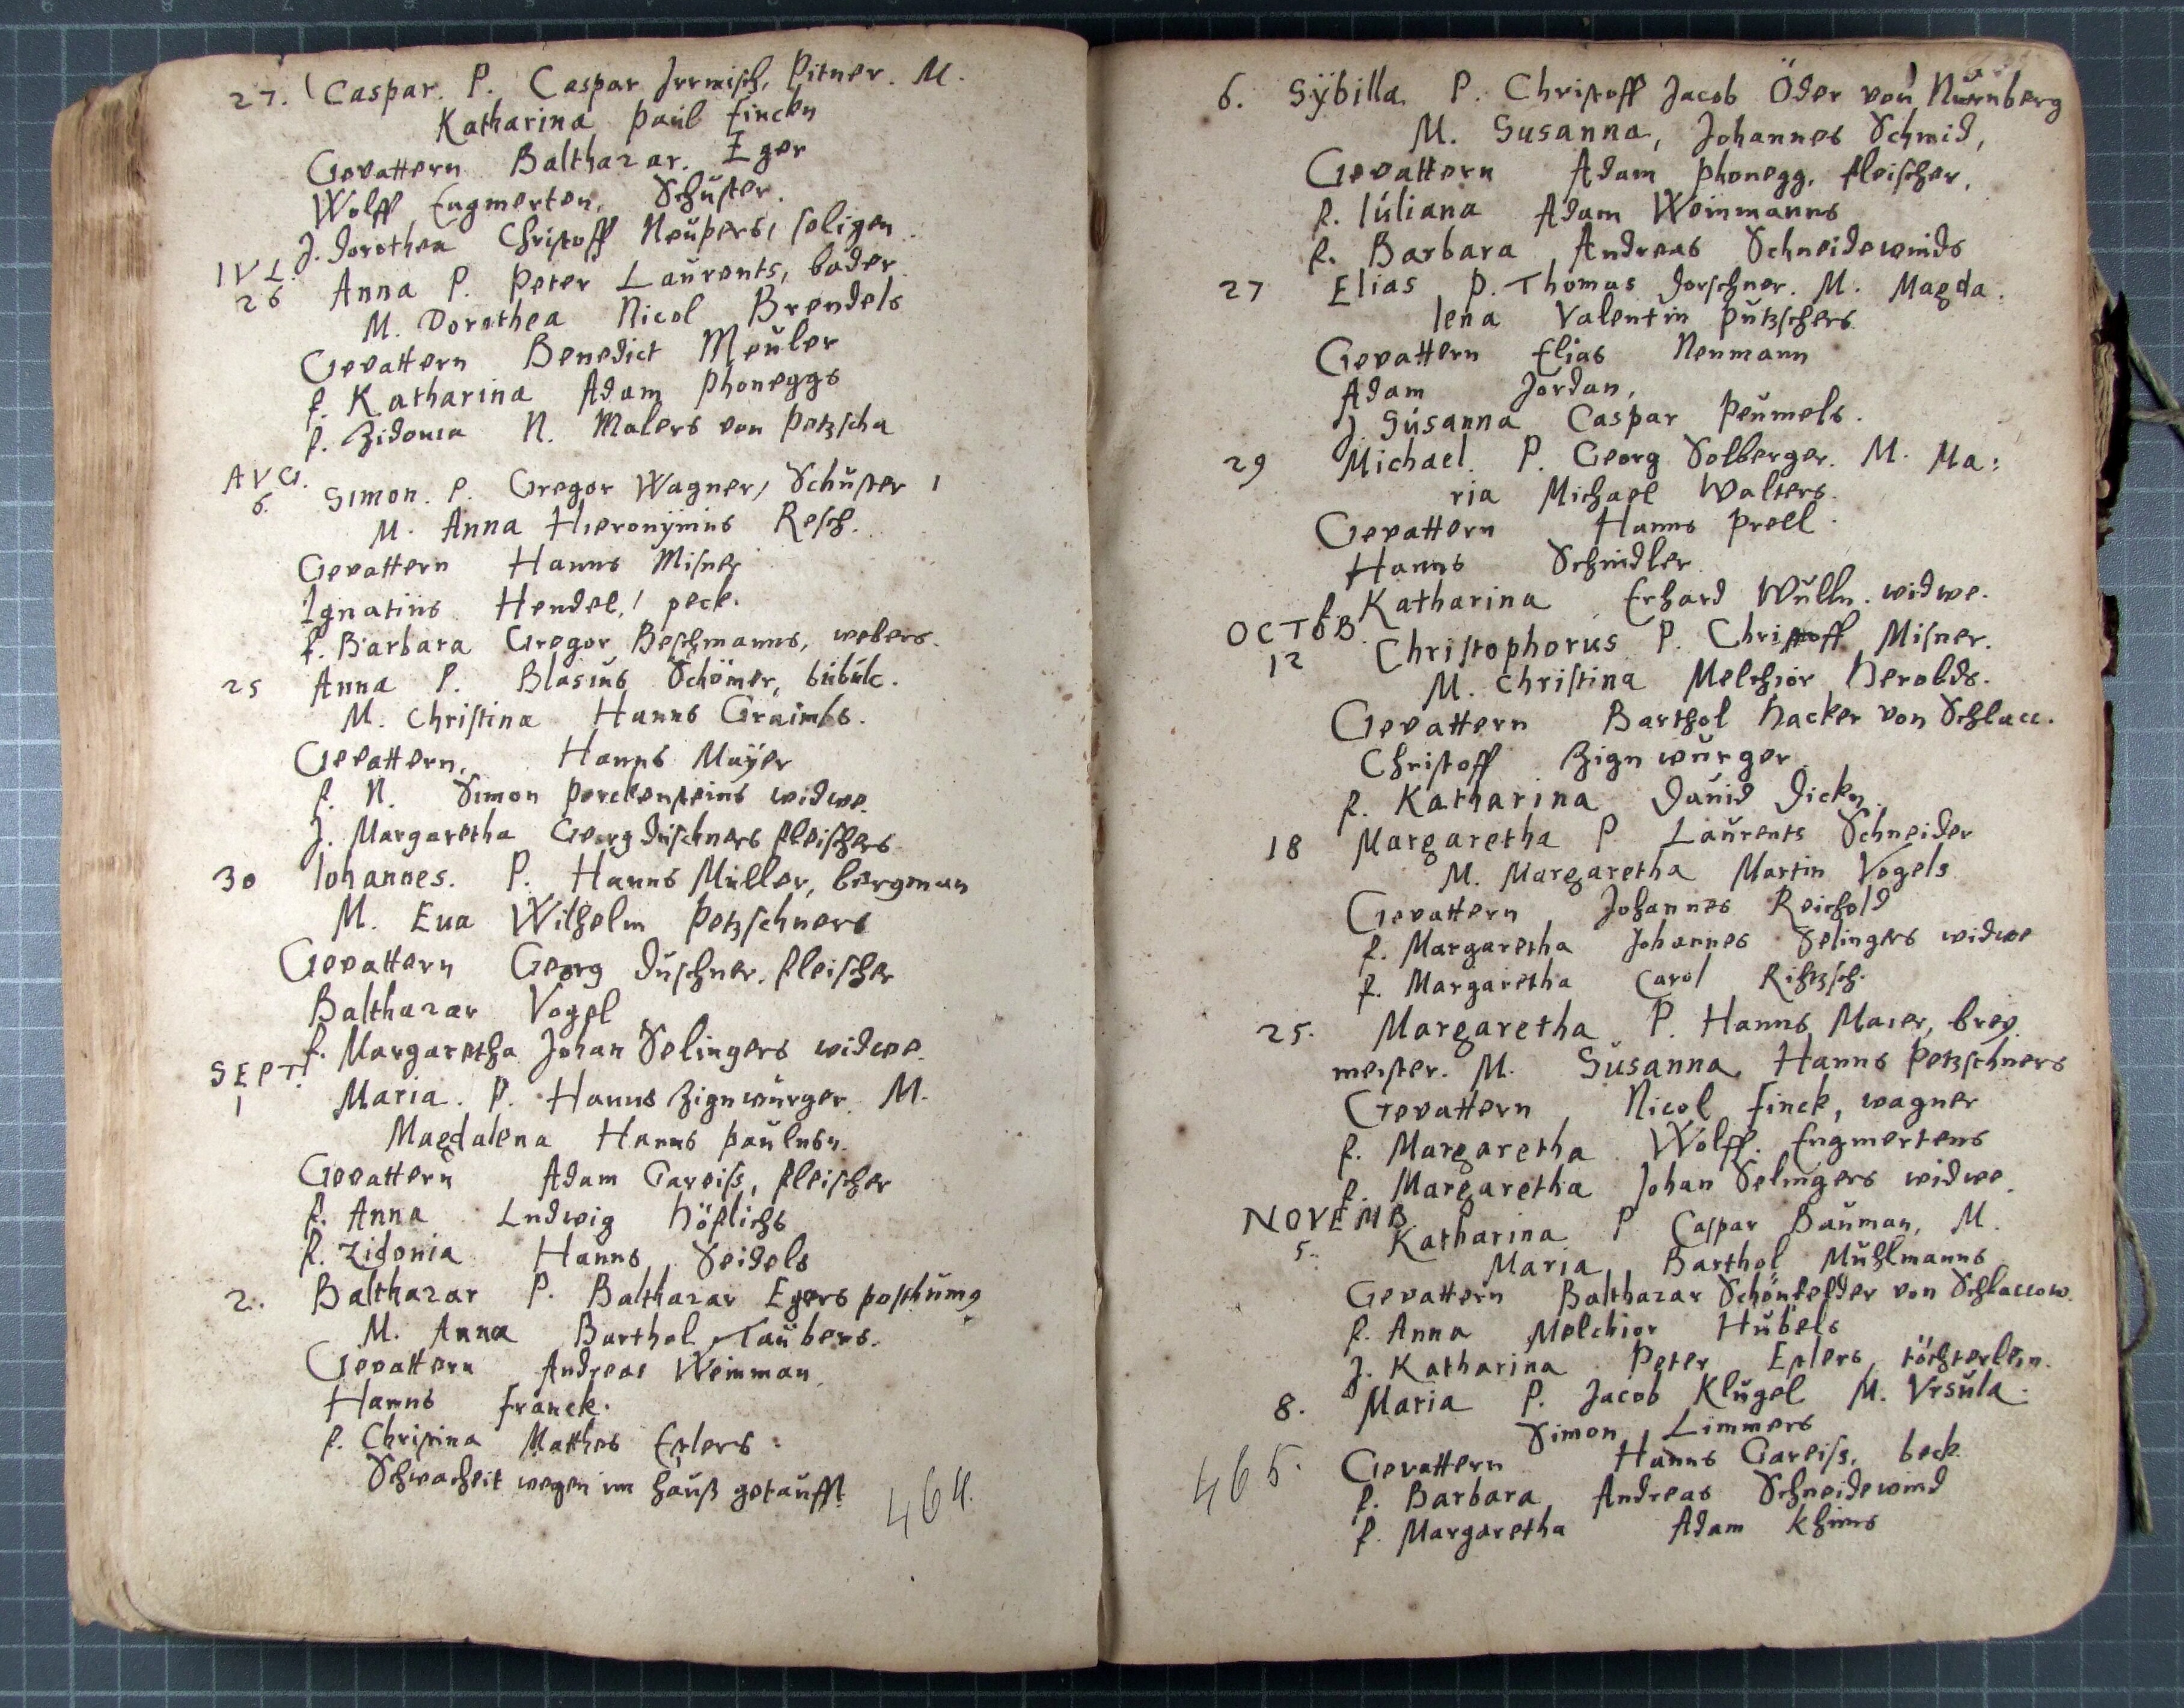 27. Caspar. P. Caspar Irrmisch, Pitner. M.
Katharina Paul Finckn
Gevattern Balthazar. Eger
Wolff Engmerten, Schuster.
J. Dorothea Christoff Neupers, seligen
IVL.
26 Anna P. Peter Laurents, bader
M. Dorothea Nicol Brendels
Gevattern Benedict Meuler
f. Katharina Adam Phoneggs
f. Zidonia N. Malers von Petzscha
AVG.
6. Simon. P. Gregor Wagner, Schuster
M. Anna Hieronÿmus Resch.
Gevattern Hanns Misner
Ignatius Hendel, peck.
f. Barbara Gregor Beschmanns, webers.
25 Anna P. Blasius Schömer, bubulc.
M. Christina Hanns Graimbs.
Gevattern, Hanns Maÿer
f. N. Simon Perckensteins widwe.
J. Margaretha Georg Duschners fleischers
30 Iohannes. P. Hanns Müller, bergman
M. Eua Wilhelm Petzschners
Gevattern Georg Duschner, fleischer
Balthazar Vogel
f. Margaretha Johan Selingers widwe.
SEPT.
1 Maria. P. Hanns Zignwürger. M.
Magdalena Hanns Paulusn.
Gevattern Adam Gareiss, fleischer
f. Anna Ludwig Höflichs
f. Zidonia Hanns Seidels
2. Balthazar P. Balthazar Egers posthum9
M. Anna Barthol Taubers.
Gevattern Andreas Weinman
Hanns Franck.
f. Christina Matthes Erlers.
Schwacheit wegen im hauß getaufft
464.
6. Sÿbilla P. Christoff Jacob Öder von Nürnberg
M. Susanna, Johannes Schmid,
Gevattern Adam Phonegg, fleischer,
f. Iuliana Adam Weinmanns
f. Barbara Andreas Schneidewinds
27 Elias P. Thomas Dorschner. M. Magda:
lena Valentin Putzschers.
Gevattern Elias Neumann
Adam Jordan,
J. Susanna Caspar Peumels.
29 Michael. P. Georg Solberger. M. Ma:
ria Michael Walters.
Gevattern Hanns Prell.
Hanns Schindler.
f. Katharina Erhard Wulln. widwe.
OCTOB.
12 Christophorus P. Christoff Misner.
M. Christina Melchior Herolds.
Gevattern Barthol Hacker von Schlacc.
Christoff Zignwürger
f. Katharina David Dickn.
18 Margaretha P. Laurents Schneider
M. Margaretha Martin Vogels
Gevattern Johannes Reichold
f. Margaretha Johannes Selingers widwe
f. Margaretha Carol Rihtzsch.
25. Margaretha P. Hanns Maier, brey.
meister. M. Susanna Hanns Petzschners
Gevattern Nicol Finck, wagner
f. Margaretha Wolff Engmertens
f. Margaretha Johan Selingers widwe.
NOVEMB.
5. Katharina P Caspar Bauman, M.
Maria Barthol Mühlmanns
Gevattern Balthazar Schönfelder von Schlaccow.
f. Anna Melchior Hübels
J. Katharina Peter Erlers, töchterlein.
8. Maria P. Jacob Klügel M. Vrsula.
Simon Limmers
Gevattern Hanns Gareiss, beck.
f. Barbara Andreas Schneidewind
f. Margaretha Adam Khims
465.